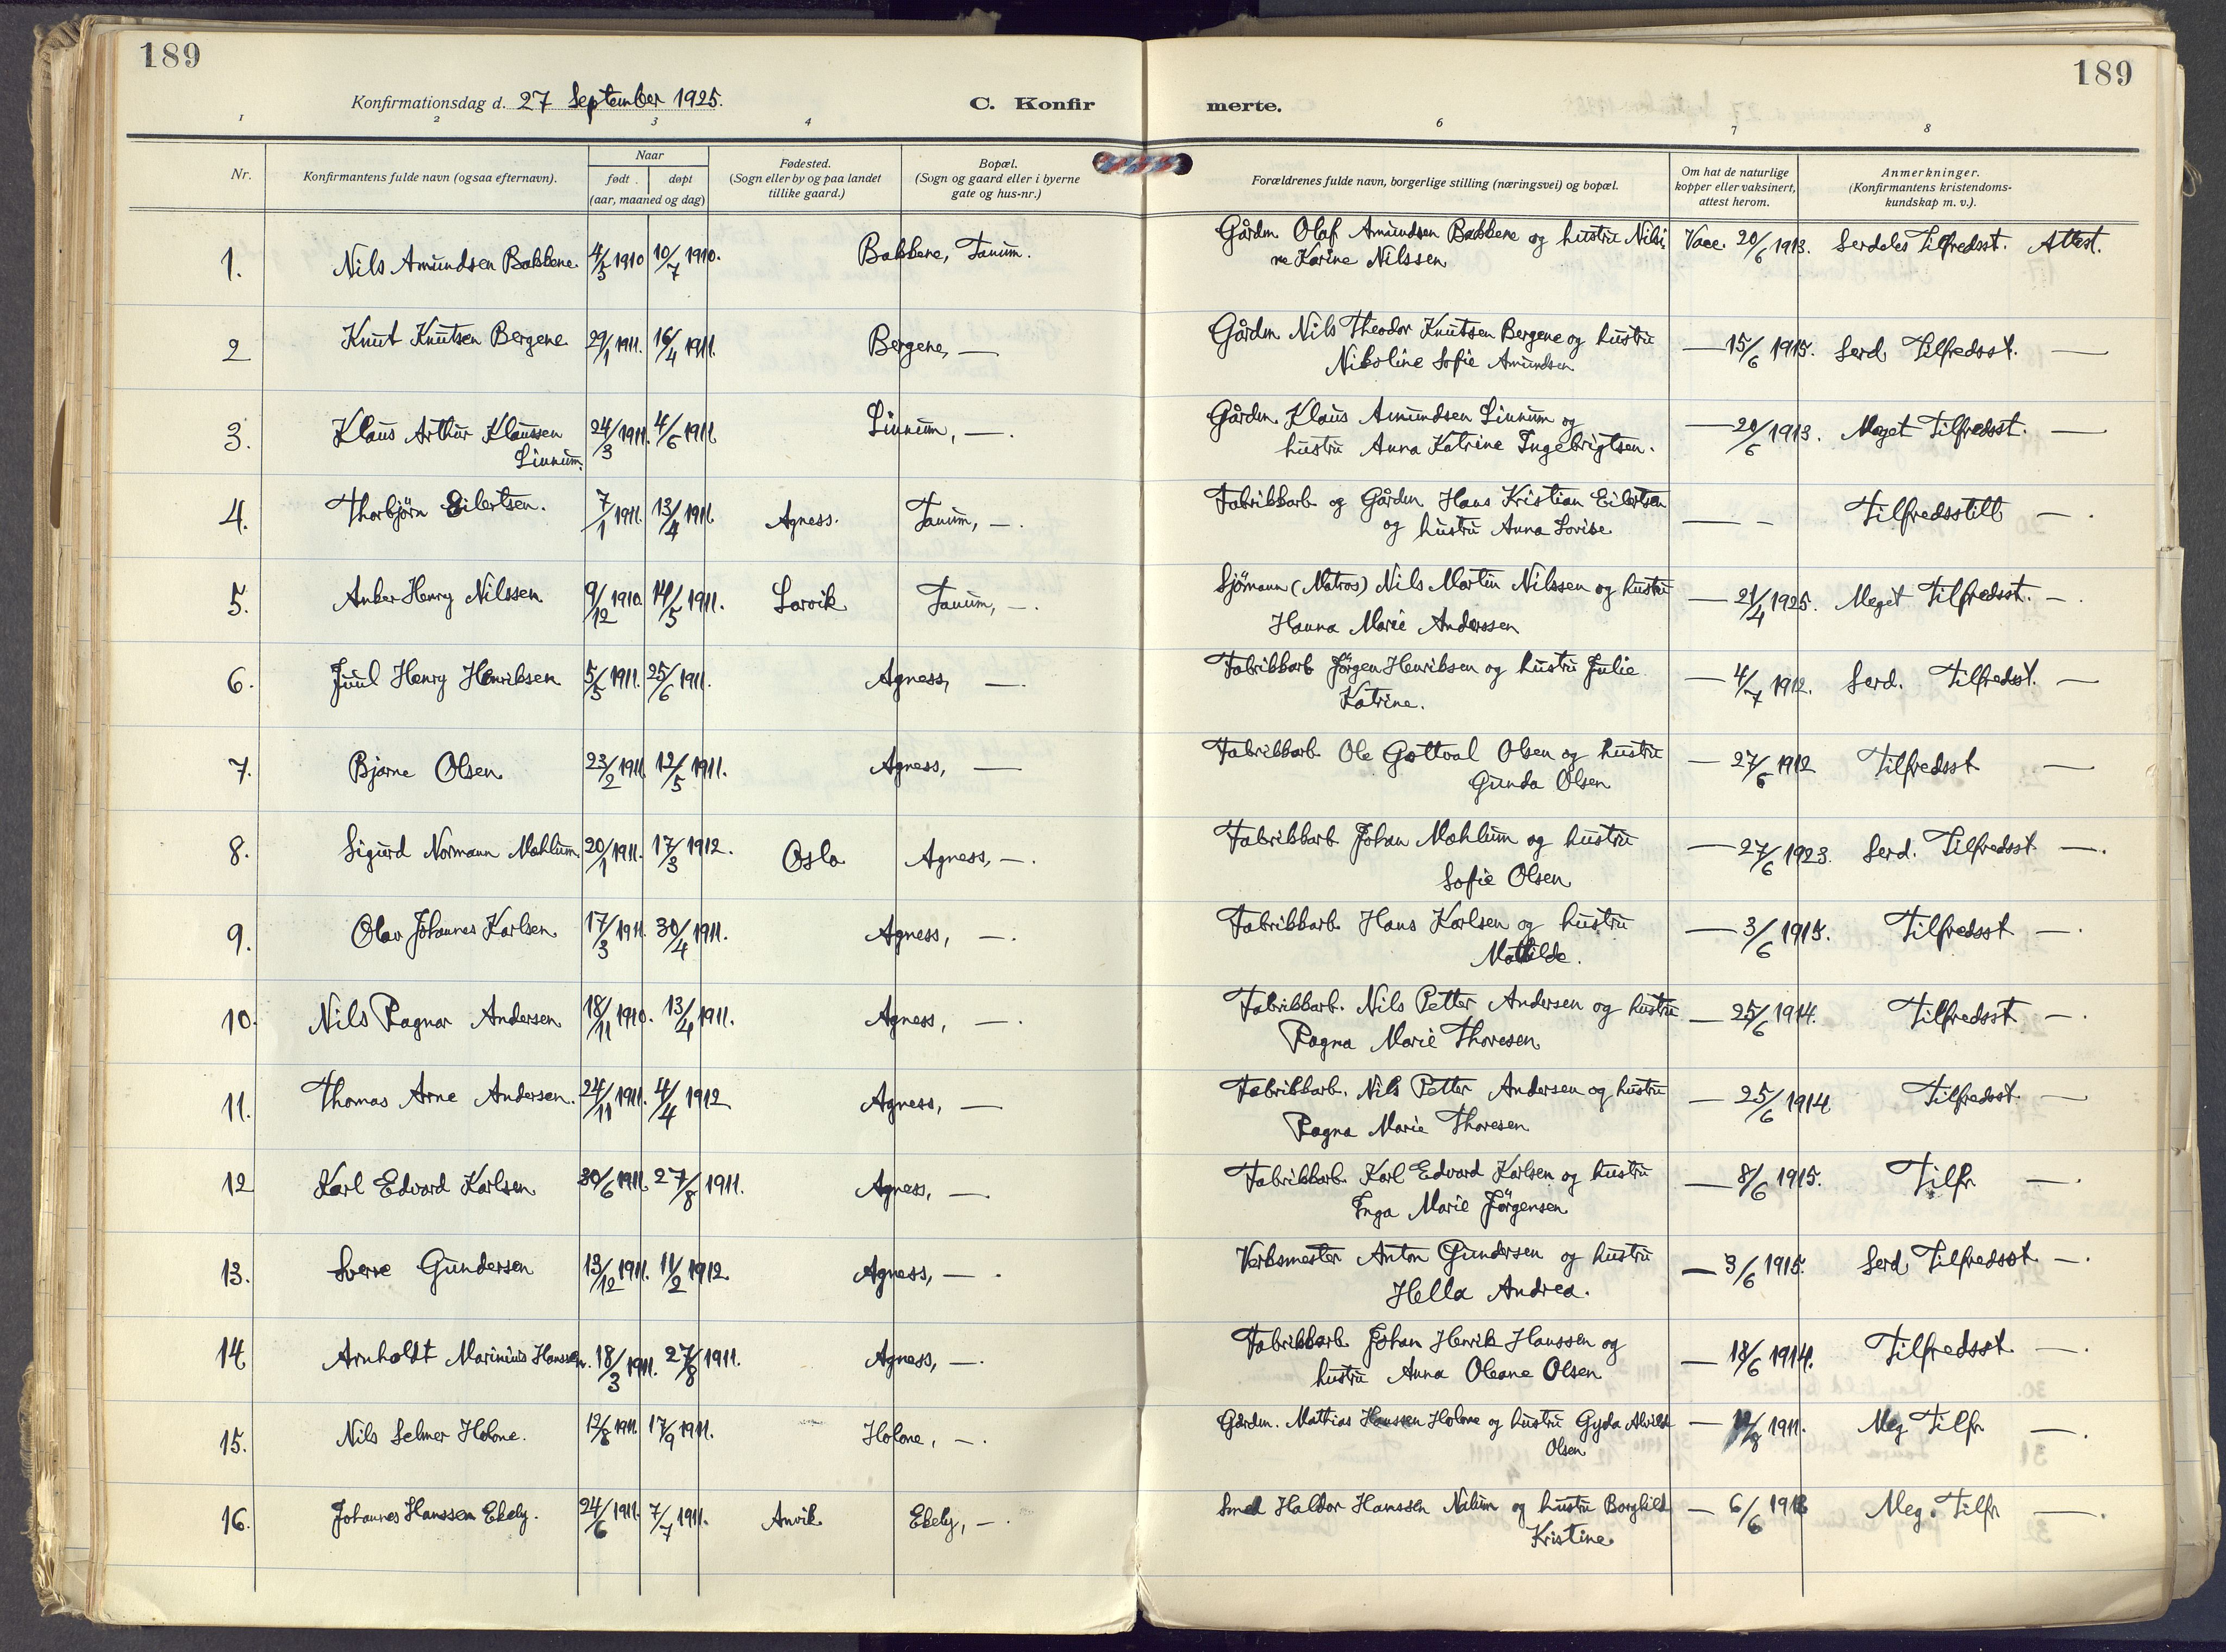 189
189
Konfirmationsdag d. 27 September 1925.
C. Konfir
merte.
1 2 3 4 6 7 8
Nr.
Konfirmantens fulde navn (ogsaa efternavn).
Naar
født
døpt
(aar, maaned og dag)
Fødested.
(Sogn eller by og paa landet
tillike gaard.)
Bopæl.
(Sogn og gaard eller i byerne
gate og hus-nr.)
Forældrenes fulde navn, borgerlige stilling (næringsvei) og bopæl.
Om hat de naturlige
kopper eller vaksinert,
attest herom.
Anmerkninger.
(Konfirmantens kristendoms-
kundskap m. v.).
1. Nils Amundsen Bakkene 4/5 1910 10/7 1910. Bakkene, Tanum. Gårdm Olaf Amundsen Bakkene og hustru Niki
ne Karine Nilssen Vacc. 20/6 1913. Serdeles Tilfredsst. Attest.
2 Knut Knutsen Bergene 29/1 1911. 16/4 1911. Bergene, — Gårdm Nils Theodor Knutsen Bergene og hustru
Nikoline Sofie Amundsen — 15/6 1915. Serd Tilfredsst. —
3. Klaus Arthur Klaussen
Linnum. 24/3 1911. 4/6 1911. Linnum, —. Gårdm. Klaus Amundsen Linnum og
hustru Anna Katrine Ingebrigtsen. — 20/6 1913. Meget Tilfredsst. —
4. Thorbjörn Eilertsen. 7/1 1911. 13/4 1911. Agness. Tanum, —. Fabrikkarb og Gårdm Hans Kristian Eilertsen
og hustru Anna Lovise — - Tilfredsstilt —.
5. Anker Henry Nilssen 9/12 1910 14/5 1911. Larvik Tanum, —. Sjömann (Matros) Nils Martin Nilssen og hustru
Hanna Marie Anderssen — 21/4 1925. Meget Tilfredsst. —.
6. Juul Henry Henriksen 5/5 1911. 25/6 1911. Agness, —. Fabrikkarb Jörgen Henriksen og hustru Julie
Katrine. — 4/7 1912. Serd. Tilfredsst. —
7. Bjarne Olsen 23/2 1911. 12/5 1911. Agness, — Fabrikkarb. Ole Gottval Olsen og hustru
Gunda Olsen — 27/6 1912 Tilfredsst —
8. Sigurd Normann Mæhlum 20/1 1911. 17/3 1912. Oslo Agness, —. Fabrikkarb Johan Mæhlum og hustru
Sofie Olsen — 27/6 1923. Serd. Tilfredsst —.
9. Olav Johannes Karlsen 17/3 1911. 30/4 1911. Agness, —. Fabrikkarb. Hans Karlsen og hustru
Mathilde. — 3/6 1915. Tilfredsst —.
10. Nils Ragnar Andersen 18/11 1910. 13/4 1911. Agness, —. Fabrikkarb. Nils Petter Andersen og hustru
Ragna Marie Thoresen — 25/6 1914. Tilfredsst —.
11. Thomas Arne Andersen. 24/11 1911. 4/4 1912 Agness, — Fabrikkarb. Nils Petter Andersen og hustru
Ragna Marie Thoresen — 25/6 1914 Tilfredsst. —
12 Karl Edvard Karlsen 30/6 1911. 27/8 1911. Agness, — Fabrikkarb. Karl Edvard Karlsen og hustru
Inga Marie Jörgensen — 8/6 1915. Tilfr —.
13. Sverre Gundersen 13/12 1911. 11/2 1912. Agness, —. Verksmester Anton Gundersen og hustru
Hella Andrea. — 3/6 1915. Serd Tilfredsst —.
14 Arnholdt Marinius Hanssen. 18/3 1911. 27/8 1911. Agness, —. Fabrikkarb. Johan Henrik Hanssen og
hustru Anna Oleane Olsen — 18/6 1914. Tilfredsst —.
15. Nils Selmer Holone. 12/8 1911 17/9 1911. Holone, —. Gårdm. Mathias Hanssen Holone og hustru Gyda Alvilde
Olsen — 1911. Meg Tilfr —.
16. Johannes Hanssen Ekely. 24/6 1911. 7/7 1911. Anvik Ekely, —. Smed Haldor Hanssen Nalum og hustru Borghild
Kristine — 6/6 1918 Meg. Tilfr —.